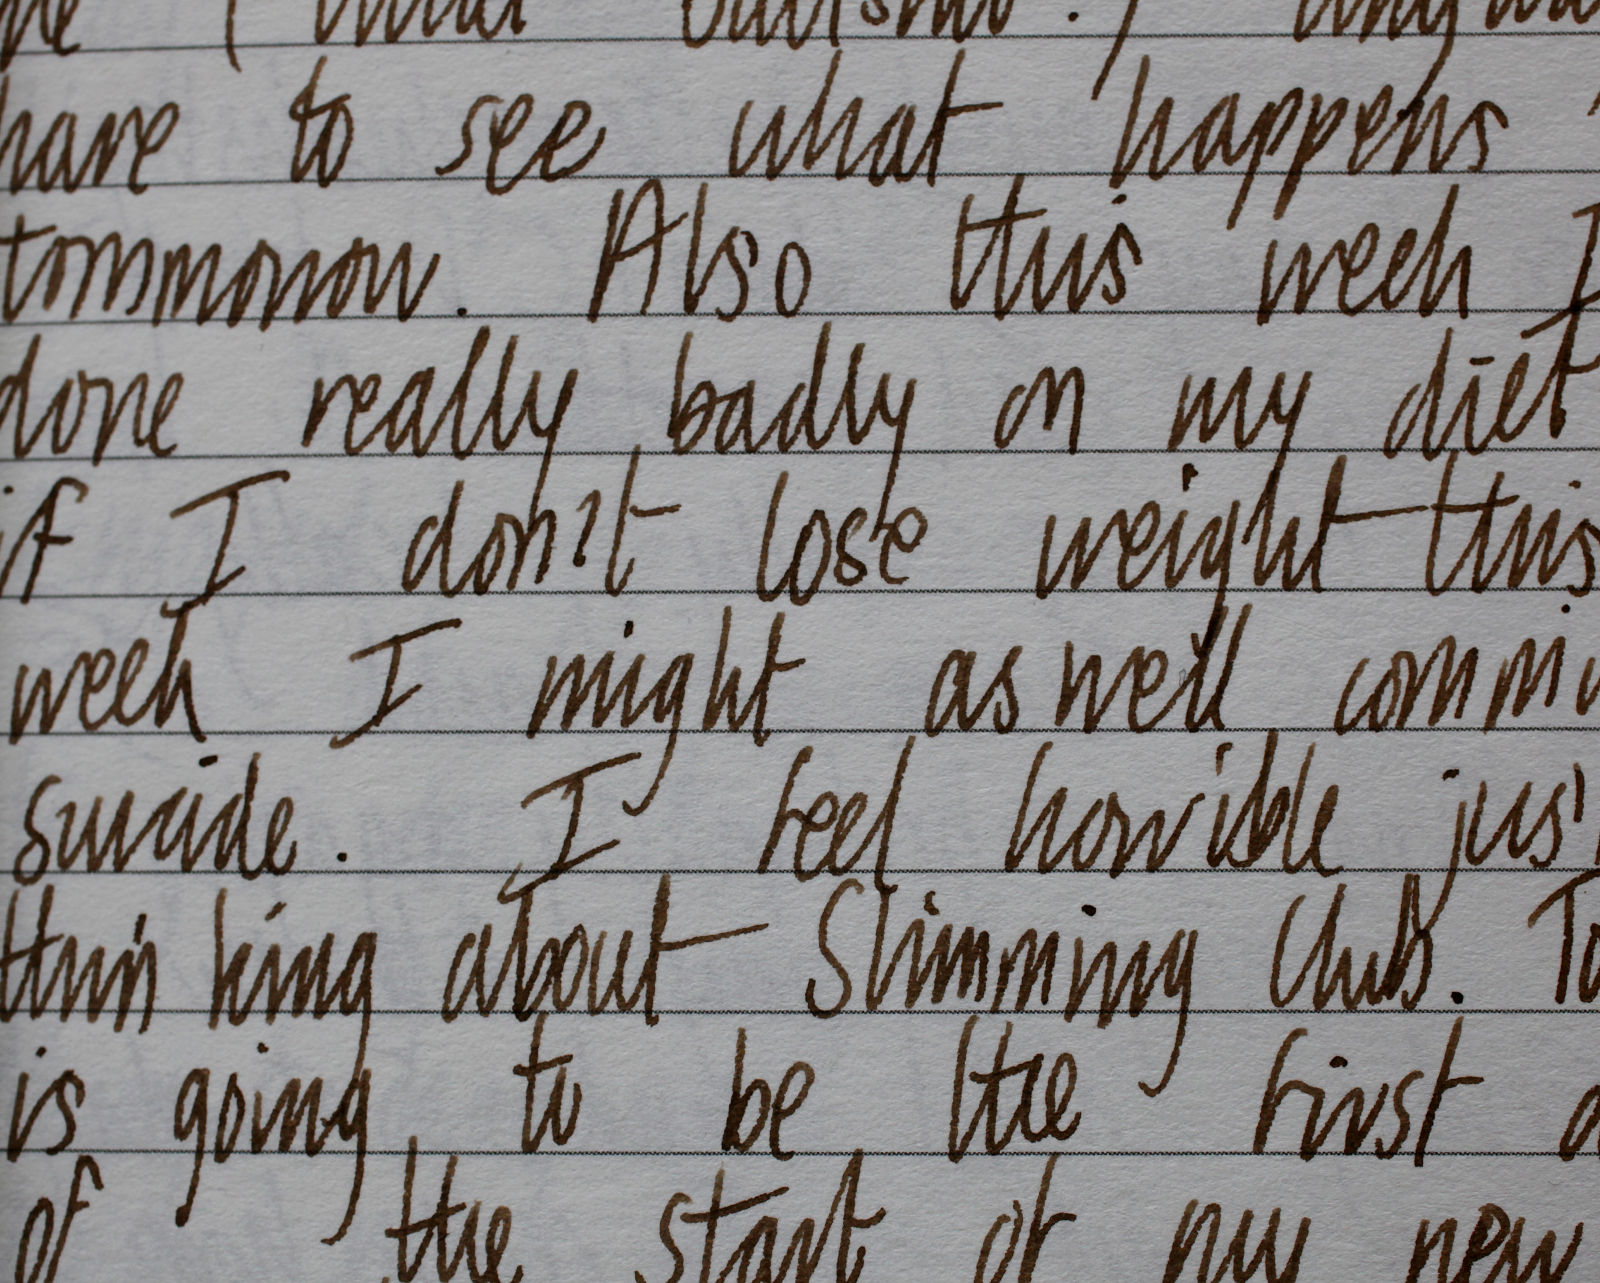 have to see what happens
tommorow. Also this week I
done really badly on my diet
if I don't lose weight this
week I might aswell commi
suicide. I feel horrible jus
thinking about Slimming Club. To
is going to be the first
of the start of my new